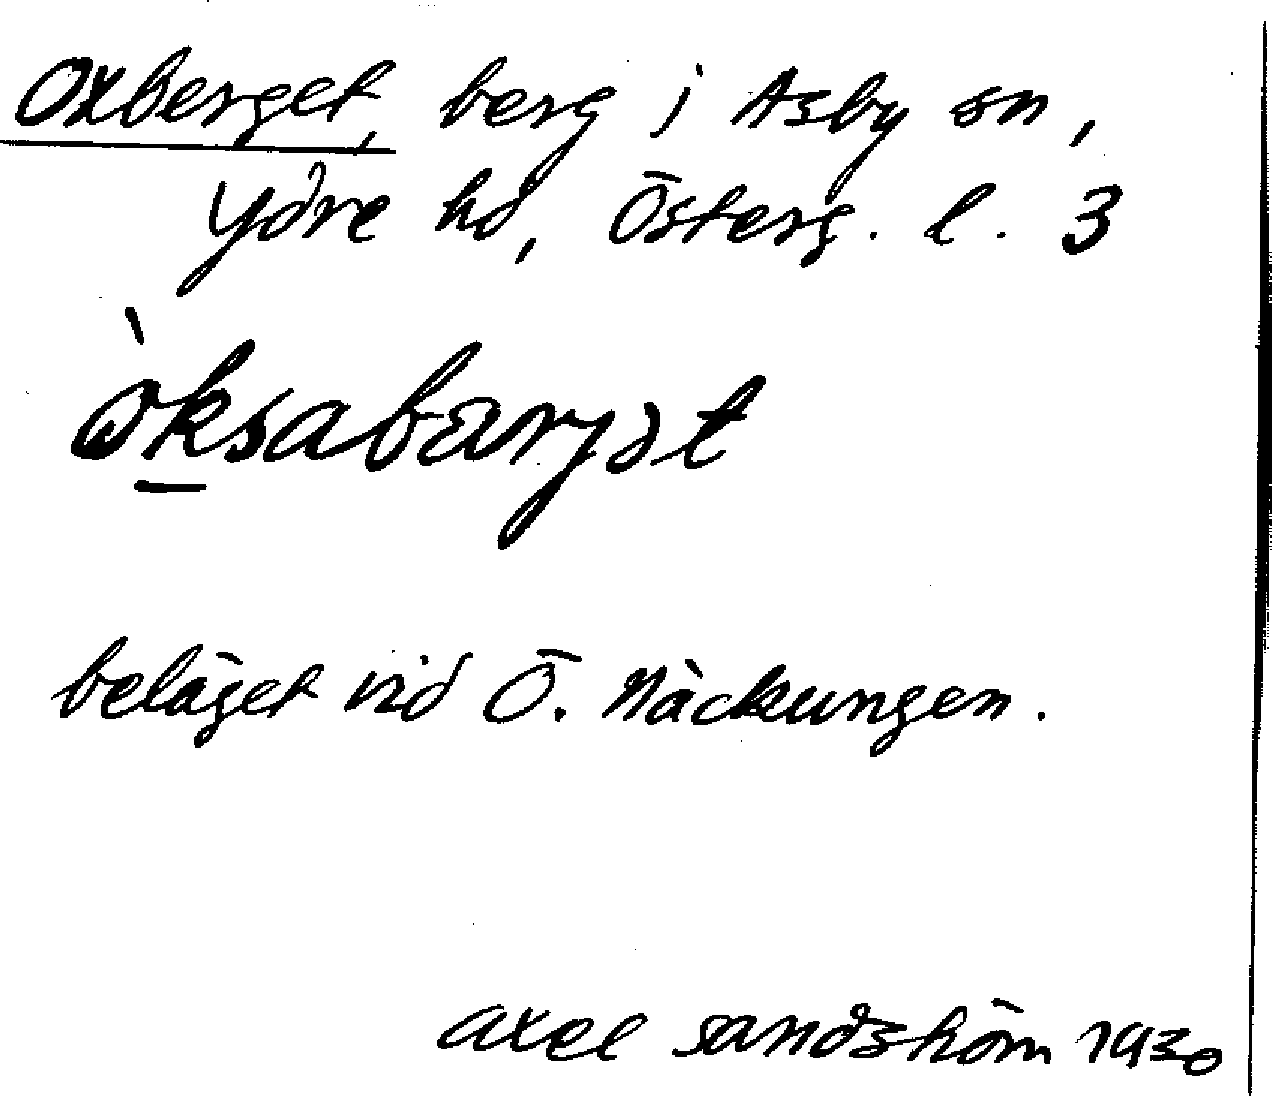 Oxberget, berg i Asby sn,
Ydre hd, Österg. l. 3
ò̱ksabæryət
beläget vid Ö. Näckungen.
Axel Sandström 1930